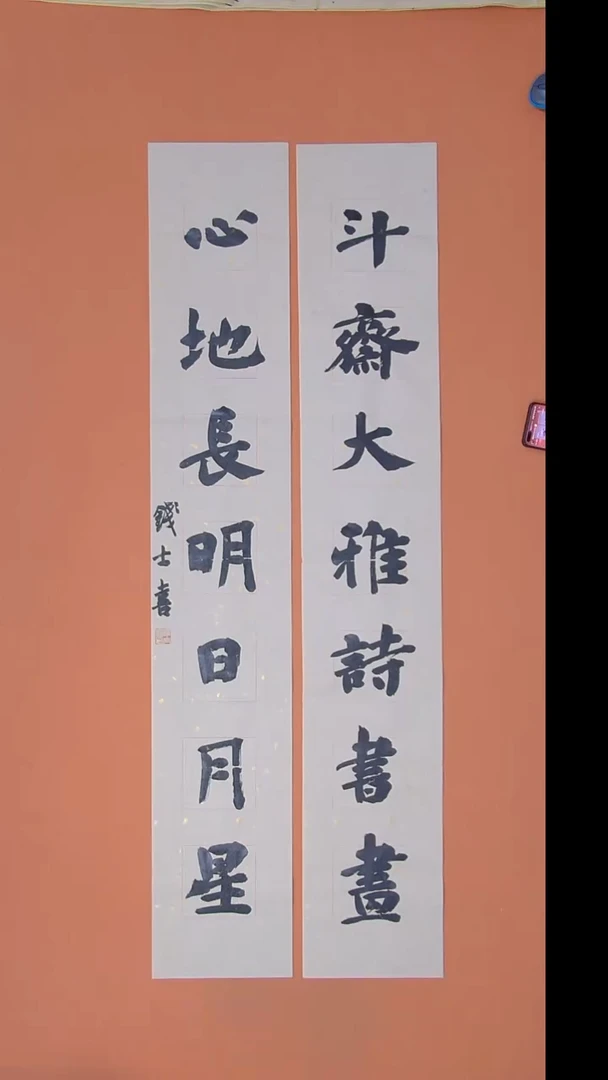 斗齋大雅詩書畫
心地長明日月星
錢士喜